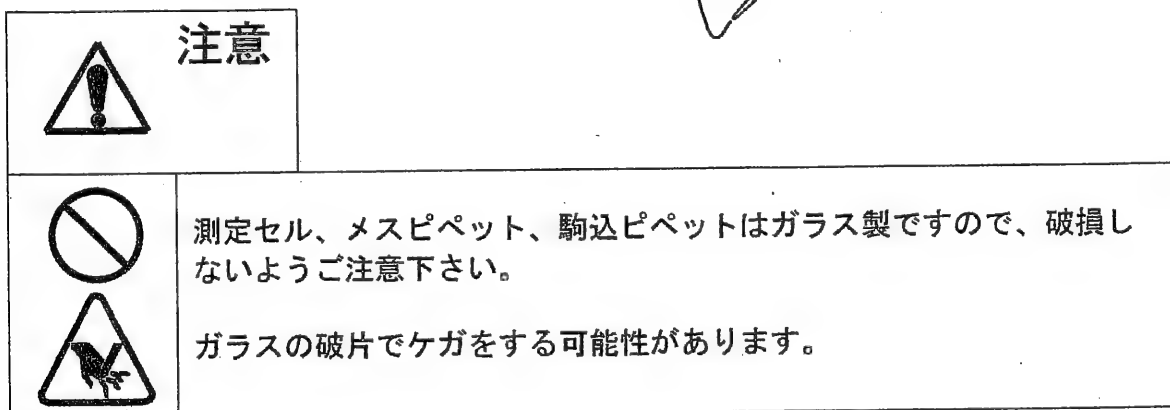 注意
測定セル、メスピペット、駒込ピペットはガラス製ですので、破損し
ないようご注意下さい。
ガラスの破片でケガをする可能性があります。